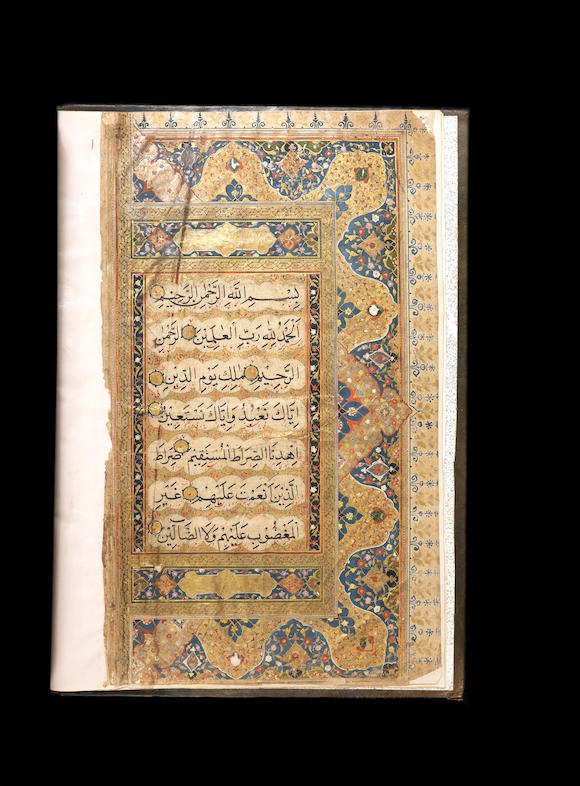 بِسْمِ اللَّهِ الرَّحْمٰنِ الرَّحِيمِ
اَلْحَمْدُ لِلّٰهِ رَبِّ الْعٰلَمِيْنَ الرَّحْمٰنِ
الرَّحِيْمِ مٰلِكِ يَوْمِ الدِّيْنِ
اِيَّاكَ نَعْبُدُ وَاِيَّاكَ نَسْتَعِيْنُ
اِهْدِنَا الصِّرَاطَ الْمُسْتَقِيْمَ صِرَاطَ
الَّذِيْنَ اَنْعَمْتَ عَلَيْهِمْ غَيْرِ
الْمَغْضُوْبِ عَلَيْهِمْ وَلَا الضَّالِّيْنَ